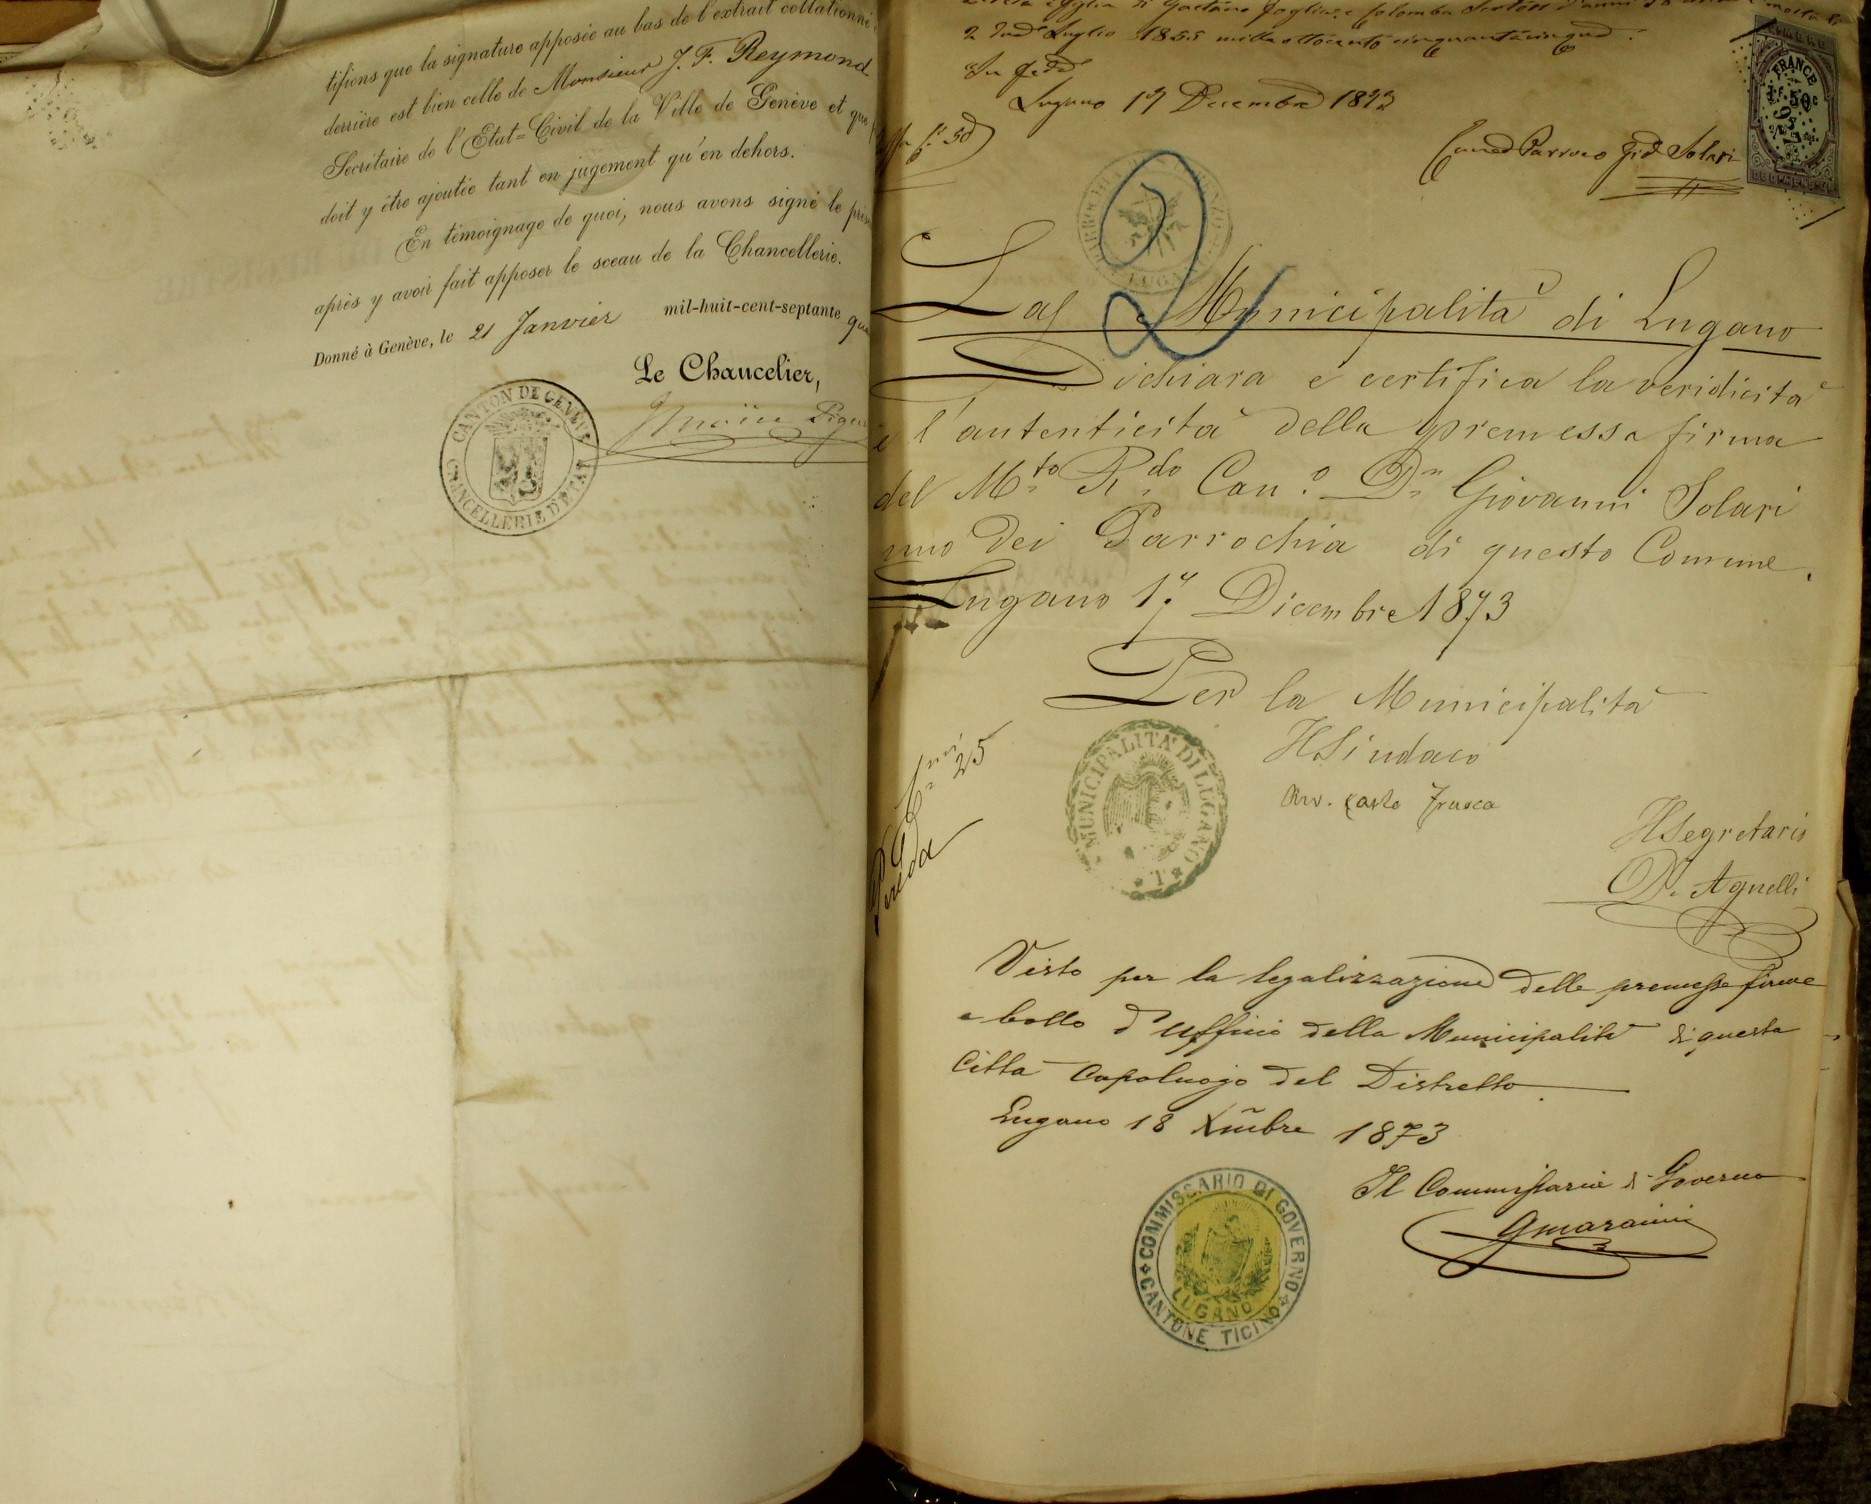 tifions que la signature apposée au bas de l'extrait collationné
derrière est bien celle de Monsieur J. F. Reymond
Secrétaire de l'Etat=Civil de la Ville de Genève et que
doit y être ajoutée tant en jugement qu'en dehors.
En témoignage de quoi, nous avons signé le
après y avoir fait apposer le sceau de la Chancellerie.
Donné à Genève, le 21 Janvier mil-huit-cent-septante
Le Chancelier,
CANTON DE GENÈVE
CHANCELLERIE D'ETAT
2 Luglio 1855 mille ottocento cinquantacinque
In fede
Lugano 17 Dicembre 1873
Parroco Gio Solari
FRANCE
50c
LUGANO
La Municipalità di Lugano
Dichiara e certifica la veridicità
e l'autenticità della premessa firma
del Mto Rdo Can.o Dn Giovanni Solari
uno dei Parrochia di questo Comune.
Lugano 17 Dicembre 1873
Per la Municipalità
Il Sindaco
Avv. Carlo Frasca
MUNICIPALITÀ DI LUGANO
25
Il Segretario
D. Agnelli
Visto per la legalizzazione delle premesse firme
e bollo d'Ufficio della Municipalità di questa
Città Capoluogo del Distretto
Lugano 18 Xmbre 1873
Il Commissario di Governo
COMMISSARIO DI GOVERNO
LUGANO
CANTONE TICINO